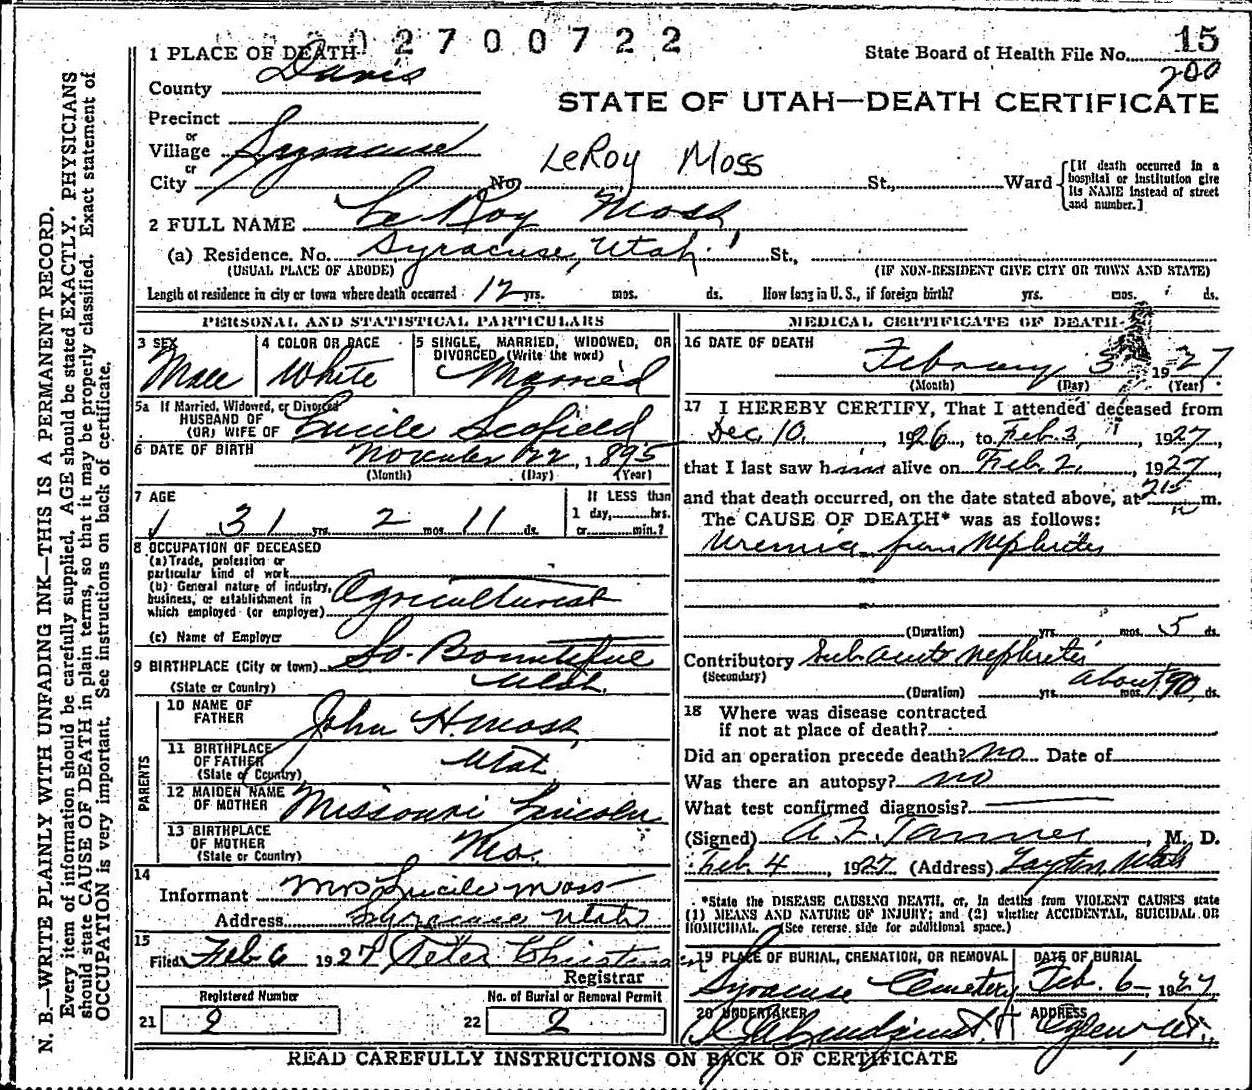 2700722
15
State Board of Health File No.
200
1 PLACE OF DEATH
County Davis
STATE OF UTAH—DEATH CERTIFICATE
Precinct
or
Village Syracuse
or
City
LeRoy Moss
No. St., Ward
[If death occurred in a hospital or institution give its NAME instead of street and number.]
2 FULL NAME Le Roy Moss
(a) Residence. No. Syracuse, Utah. St.,
(USUAL PLACE OF ABODE) (IF NON-RESIDENT GIVE CITY OR TOWN AND STATE)
Length of residence in city or town where death occurred 12 yrs. mos. ds. How long in U. S., if foreign birth? yrs. mos. ds.
PERSONAL AND STATISTICAL PARTICULARS
3 SEX
Male
4 COLOR OR RACE
White
5 SINGLE, MARRIED, WIDOWED, OR
DIVORCED (Write the word)
Married
5a If Married, Widowed, or Divorced
HUSBAND OF
(OR) WIFE OF Lucile Scofield
6 DATE OF BIRTH November 22, 1895
(Month) (Day) (Year)
7 AGE
31 yrs. 2 mos. 11 ds.
If LESS than
1 day, hrs.
or min.?
8 OCCUPATION OF DECEASED
(a) Trade, profession or
particular kind of work
(b) General nature of industry,
business, or establishment in
which employed (or employer) Agriculturist
(c) Name of Employer
9 BIRTHPLACE (City or town) So. Bountiful
(State or Country) Utah.
PARENTS
10 NAME OF
FATHER John H. Moss
11 BIRTHPLACE
OF FATHER Utah
(State or Country)
12 MAIDEN NAME
OF MOTHER Missouri Lincoln
13 BIRTHPLACE
OF MOTHER Mo.
(State or Country)
14
Informant Mrs Lucile Moss
Address Syracuse Utah
15
Filed Feb 6 1927 Peter Christensen
Registrar
Registered Number
21 2
No. of Burial or Removal Permit
22 2
MEDICAL CERTIFICATE OF DEATH
16 DATE OF DEATH
February 3 1927
(Month) (Day) (Year)
17 I HEREBY CERTIFY, That I attended deceased from
Dec. 10, 1926, to Feb. 3, 1927,
that I last saw him alive on Feb. 2, 1927,
and that death occurred, on the date stated above, at 215 m.
The CAUSE OF DEATH* was as follows:
Uremia from Nephritis
(Duration) yrs. mos. 5 ds.
Contributory Subacute nephritis
(Secondary)
about 90
(Duration) yrs. mos. ds.
18 Where was disease contracted
if not at place of death?
Did an operation precede death? no Date of
Was there an autopsy? no
What test confirmed diagnosis?
(Signed) A Z. Tanner, M. D.
Feb. 4, 1927 (Address) Layton, Utah
*State the DISEASE CAUSING DEATH, or, in deaths from VIOLENT CAUSES state
(1) MEANS AND NATURE OF INJURY; and (2) whether ACCIDENTAL, SUICIDAL OR
HOMICIDAL. (See reverse side for additional space.)
19 PLACE OF BURIAL, CREMATION, OR REMOVAL
Syracuse Cemetery
DATE OF BURIAL
Feb. 6 1927
20 UNDERTAKER
ADDRESS
READ CAREFULLY INSTRUCTIONS ON BACK OF CERTIFICATE
N. B.—WRITE PLAINLY WITH UNFADING INK—THIS IS A PERMANENT RECORD.
Every item of information should be carefully supplied. AGE should be stated EXACTLY. PHYSICIANS
should state CAUSE OF DEATH in plain terms, so that it may be properly classified. Exact statement of
OCCUPATION is very important. See instructions on back of certificate.